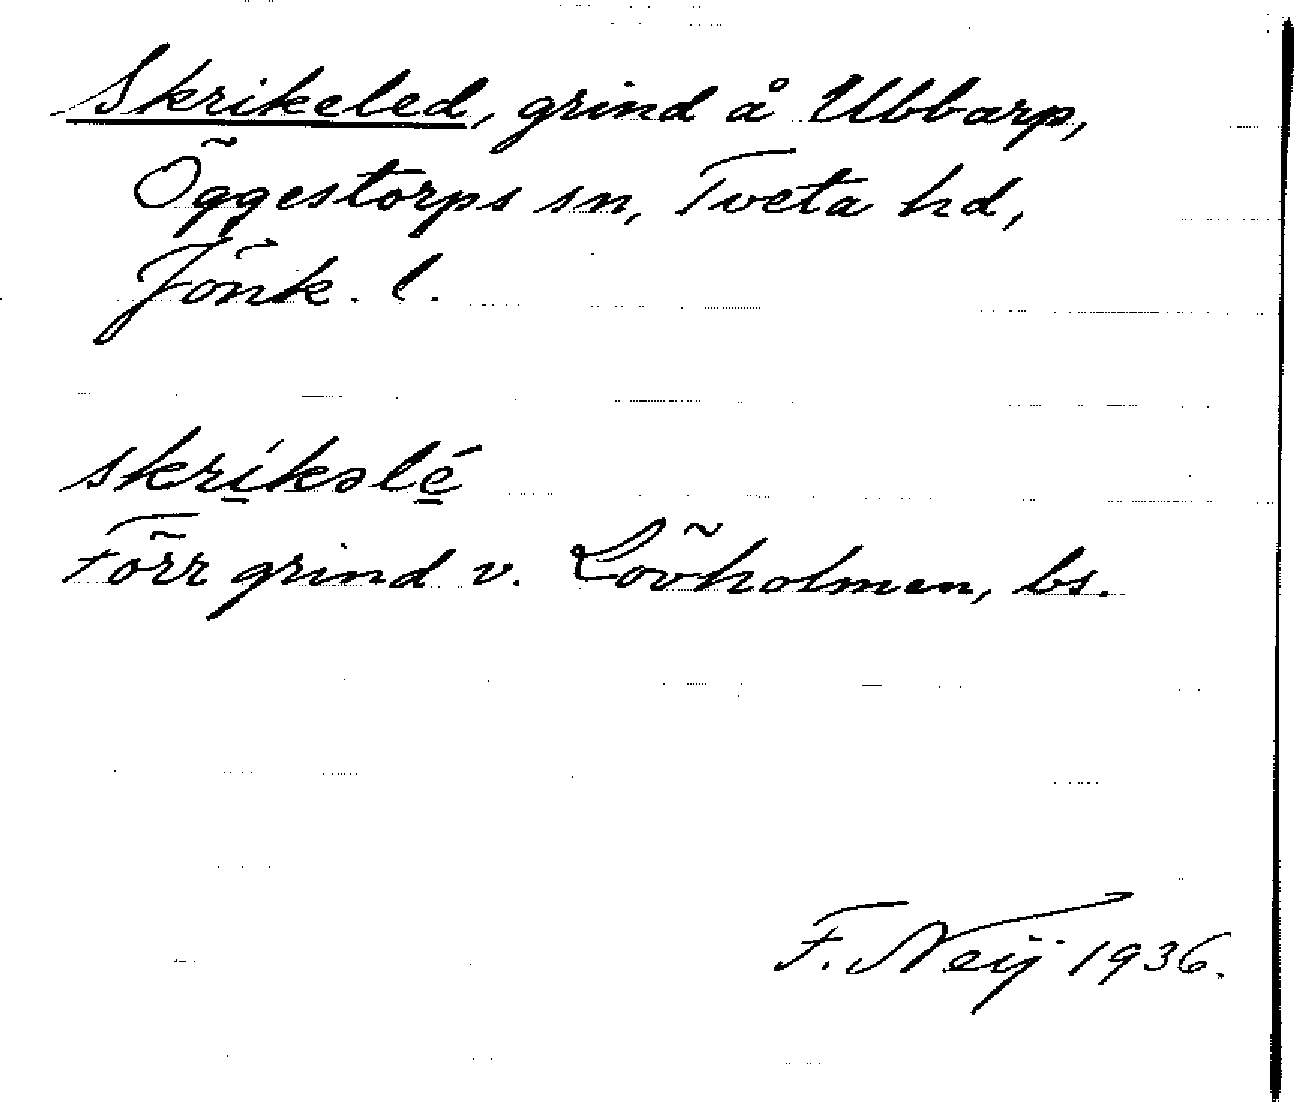 Skrikeled, grind å Ubbarp,
Öggestorps sn, Tveta hd,
Jönk. l.
skrí̱kəlé̱
Förr grind v. Lövholmen, bs.
F. Neij 1936.